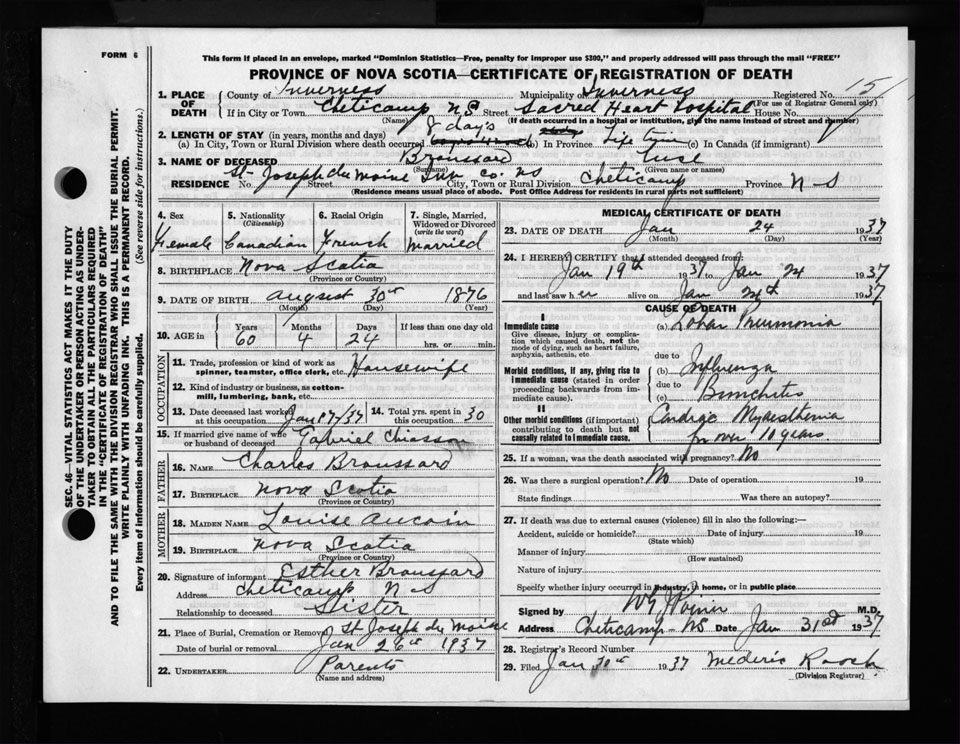 FORM 6
This form if placed in an envelope, marked "Dominion Statistics—Free, penalty for improper use $300," and properly addressed will pass through the mail "FREE"
PROVINCE OF NOVA SCOTIA—CERTIFICATE OF REGISTRATION OF DEATH
1. PLACE OF DEATH County of Inverness Municipality of Inverness Registered No. 15
(For use of Registrar General only)
If in City or Town Cheticamp NS Street Sacred Heart Hospital House No.
(Name) (If death occurred in a hospital or institution, give the name instead of street and number)
2. LENGTH OF STAY (in years, months and days)
(a) In City, Town or Rural Division where death occurred 8 days (b) In Province Life time (c) In Canada (if immigrant)
3. NAME OF DECEASED Broussard
(Surname) (Given name or names)
RESIDENCE No. St Joseph du Moine Inv. co. NS Street City, Town or Rural Division Cheticamp Province N-S
(Residence means usual place of abode. Post Office Address for residents in rural parts not sufficient)
4. Sex Female
5. Nationality (Citizenship) Canadian
6. Racial Origin French
7. Single, Married, Widowed or Divorced (write the word) Married
8. BIRTHPLACE Nova Scotia
(Province or Country)
9. DATE OF BIRTH August 30th 1876
(Month) (Day) (Year)
10. AGE in Years 60 Months 4 Days 24 If less than one day old hrs. or min.
OCCUPATION
11. Trade, profession or kind of work as spinner, teamster, office clerk, etc. Housewife
12. Kind of industry or business, as cotton-mill, lumbering, bank, etc.
13. Date deceased last worked at this occupation Jan 17/37 14. Total yrs. spent in 30
15. If married give name of wife or husband of deceased Gabriel Chiasson
FATHER
16. NAME Charles Broussard
17. BIRTHPLACE Nova Scotia
(Province or Country)
MOTHER
18. MAIDEN NAME Louise Aucoin
19. BIRTHPLACE Nova Scotia
(Province or Country)
20. Signature of informant Esther Broussard
Address Cheticamp N S
Relationship to deceased Sister
21. Place of Burial, Cremation or Removal St Joseph du Moine
Date of burial or removal Jan 26th 1937
22. UNDERTAKER Parents
(Name and address)
MEDICAL CERTIFICATE OF DEATH
23. DATE OF DEATH Jan 24 1937
(Month) (Day) (Year)
24. I HEREBY CERTIFY that I attended deceased from:
Jan 19th 1937 to Jan 24 1937
and last saw her alive on Jan 24th 1937
CAUSE OF DEATH
I
Immediate cause
Give disease, injury or complication which caused death, not the mode of dying, such as heart failure, asphyxia, asthenia, etc
(a) Lobar Pneumonia
due to
Morbid conditions, if any, giving rise to immediate cause (stated in order proceeding backwards from immediate cause).
(b) Influenza
due to
(c) Bronchitis
II
Other morbid conditions (if important) contributing to death but not causally related to immediate cause.
Cardiac Myasthenia
for over 10 years.
25. If a woman, was the death associated with pregnancy? No
26. Was there a surgical operation? No Date of operation 19
State findings Was there an autopsy?
27. If death was due to external causes (violence) fill in also the following:—
Accident, suicide or homicide? Date of injury 19
(State which)
Manner of injury
(How sustained)
Nature of injury
Specify whether injury occurred in industry, in home, or in public place
Signed by M.D.
Address Cheticamp - NS Date Jan 31st 1937
28. Registrar's Record Number
29. Filed Jan 30th 1937 Mederic
(Division Registrar)
SEC. 46—VITAL STATISTICS ACT MAKES IT THE DUTY
OF THE UNDERTAKER OR PERSON ACTING AS UNDER-
TAKER TO OBTAIN ALL THE PARTICULARS REQUIRED
IN THE "CERTIFICATE OF REGISTRATION OF DEATH"
AND TO FILE THE SAME WITH THE DIVISION REGISTRAR WHO SHALL ISSUE THE BURIAL PERMIT.
WRITE PLAINLY WITH UNFADING INK. THIS IS A PERMANENT RECORD.
Every item of information should be carefully supplied. (See reverse side for instructions.)